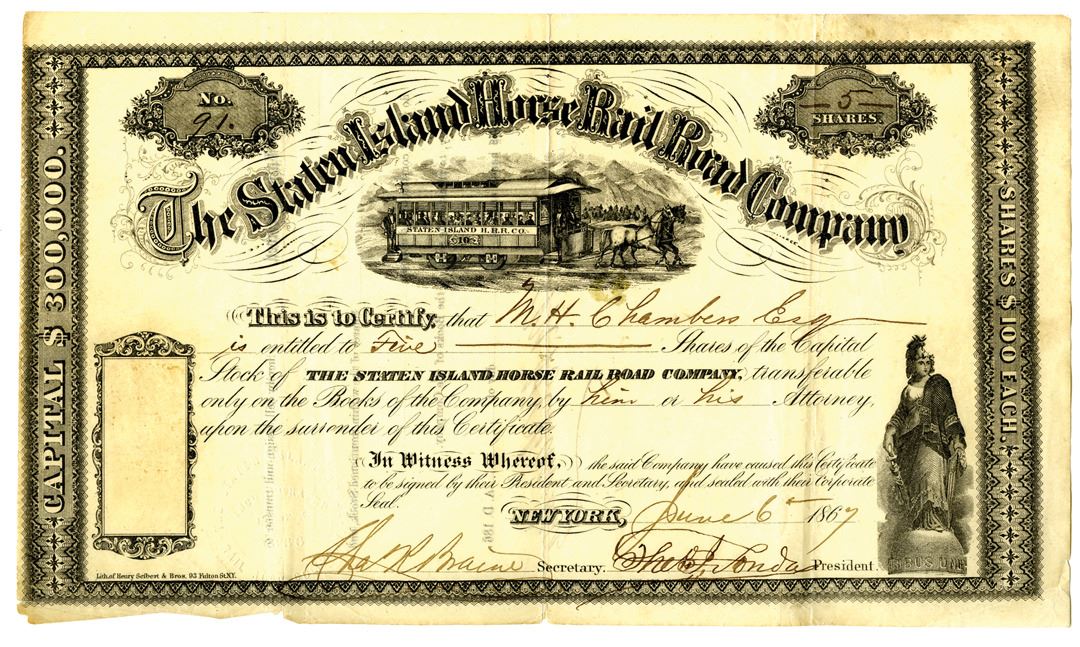 No. 91.
5 SHARES.
The Staten Island Horse Rail Road Company
STATEN-ISLAND H.R.R.CO.
102
CAPITAL $ 300,000.
SHARES $ 100 EACH.
This is to Certify, that M. H. Chambers Esq
is entitled to Five Shares of the Capital
Stock of THE STATEN ISLAND HORSE RAIL ROAD COMPANY, transferable
only on the Books of the Company, by him or his Attorney,
upon the surrender of this Certificate.
In Witness Whereof, the said Company have caused this Certificate
to be signed by their President and Secretary, and sealed with their Corporate
Seal.
NEW YORK, June 6th 1867
Secretary. President.
Lith. of Henry Seibert & Bros. 93 Fulton St. N.Y.